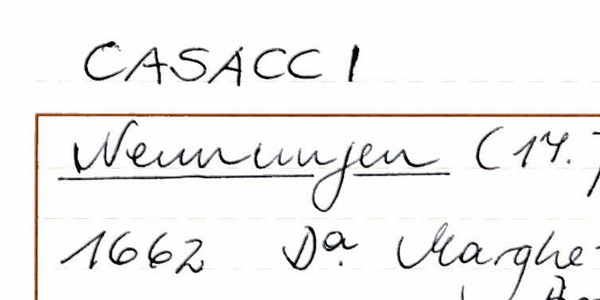 CASACCI
Nennungen (14.
1662 Dª. Marghe-